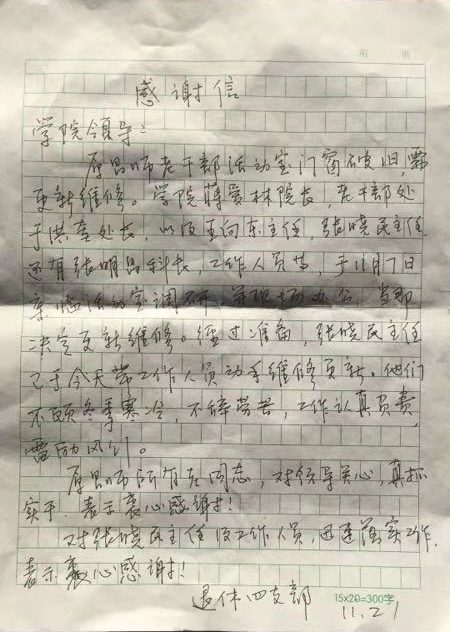 感谢信
学院领导:
原昌师老干部活动室门窗破旧,需
更新维修。学院蒋爱林院长,老干部处
于洪奎处长,以及王向东主任,张晓民主任,
还有张明昌科长,工作人员等,于11月7日
亲临活动室调研,并现场办公,当即
决定更新维修。经过准备,张晓民主任
已于今天带工作人员动手维修更新。他们
不顾冬季寒冷,不辞劳苦,工作认真负责,
雷励风行。
原昌师所有老同志,对领导关心,真抓
实干,表示衷心感谢!
对张晓民主任及工作人员,迅速落实工作,
表示衷心感谢!
退休四支部
15x20=300字
11.21